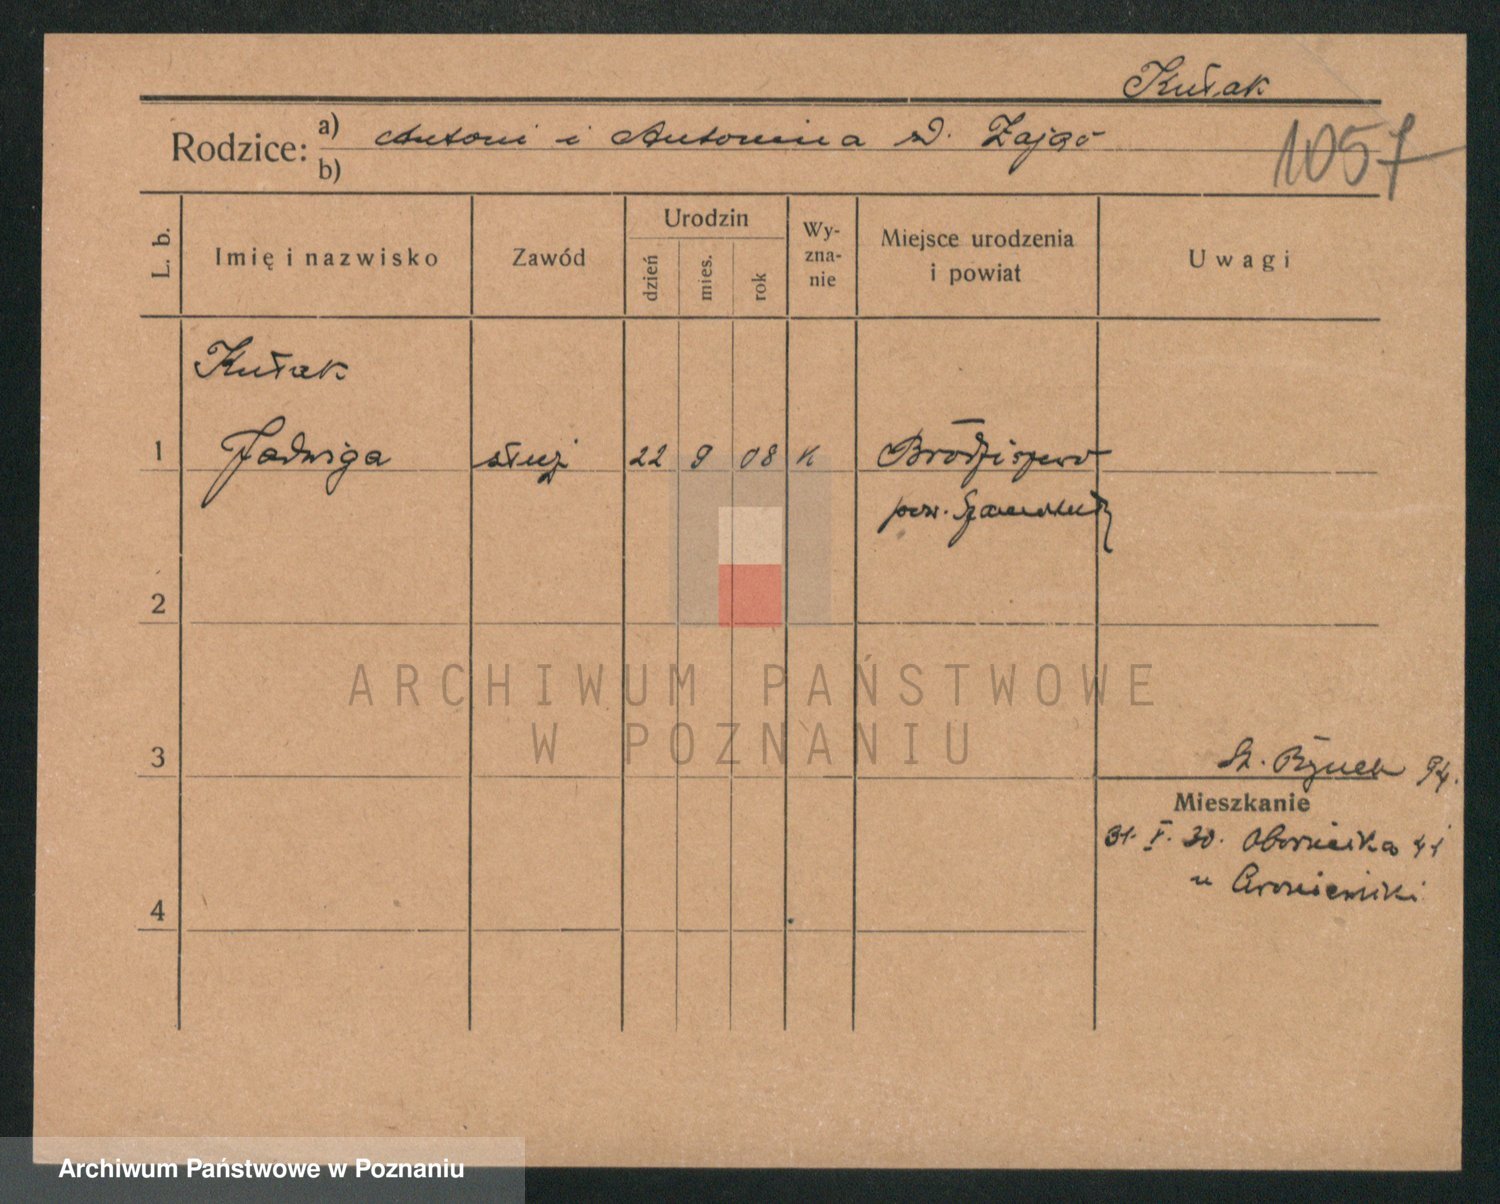 Kułak
1057
Rodzice: a) Antoni i Antonina d. Zając
b)
L. b.
Imię i nazwisko
Zawód
Urodzin
dzień
mies.
rok
Wy-
zna-
nie
Miejsce urodzenia
i powiat
Uwagi
Kułak
1 Jadwiga służ 22 9 08 K Brodziszewo
pow. Szamotuły
2
ARCHIWUM PAŃSTWOWE
W POZNANIU
3
St. Rynek 94.
Mieszkanie
31. V. 30. Obornicka 41
u
4
Archiwum Państwowe w Poznaniu